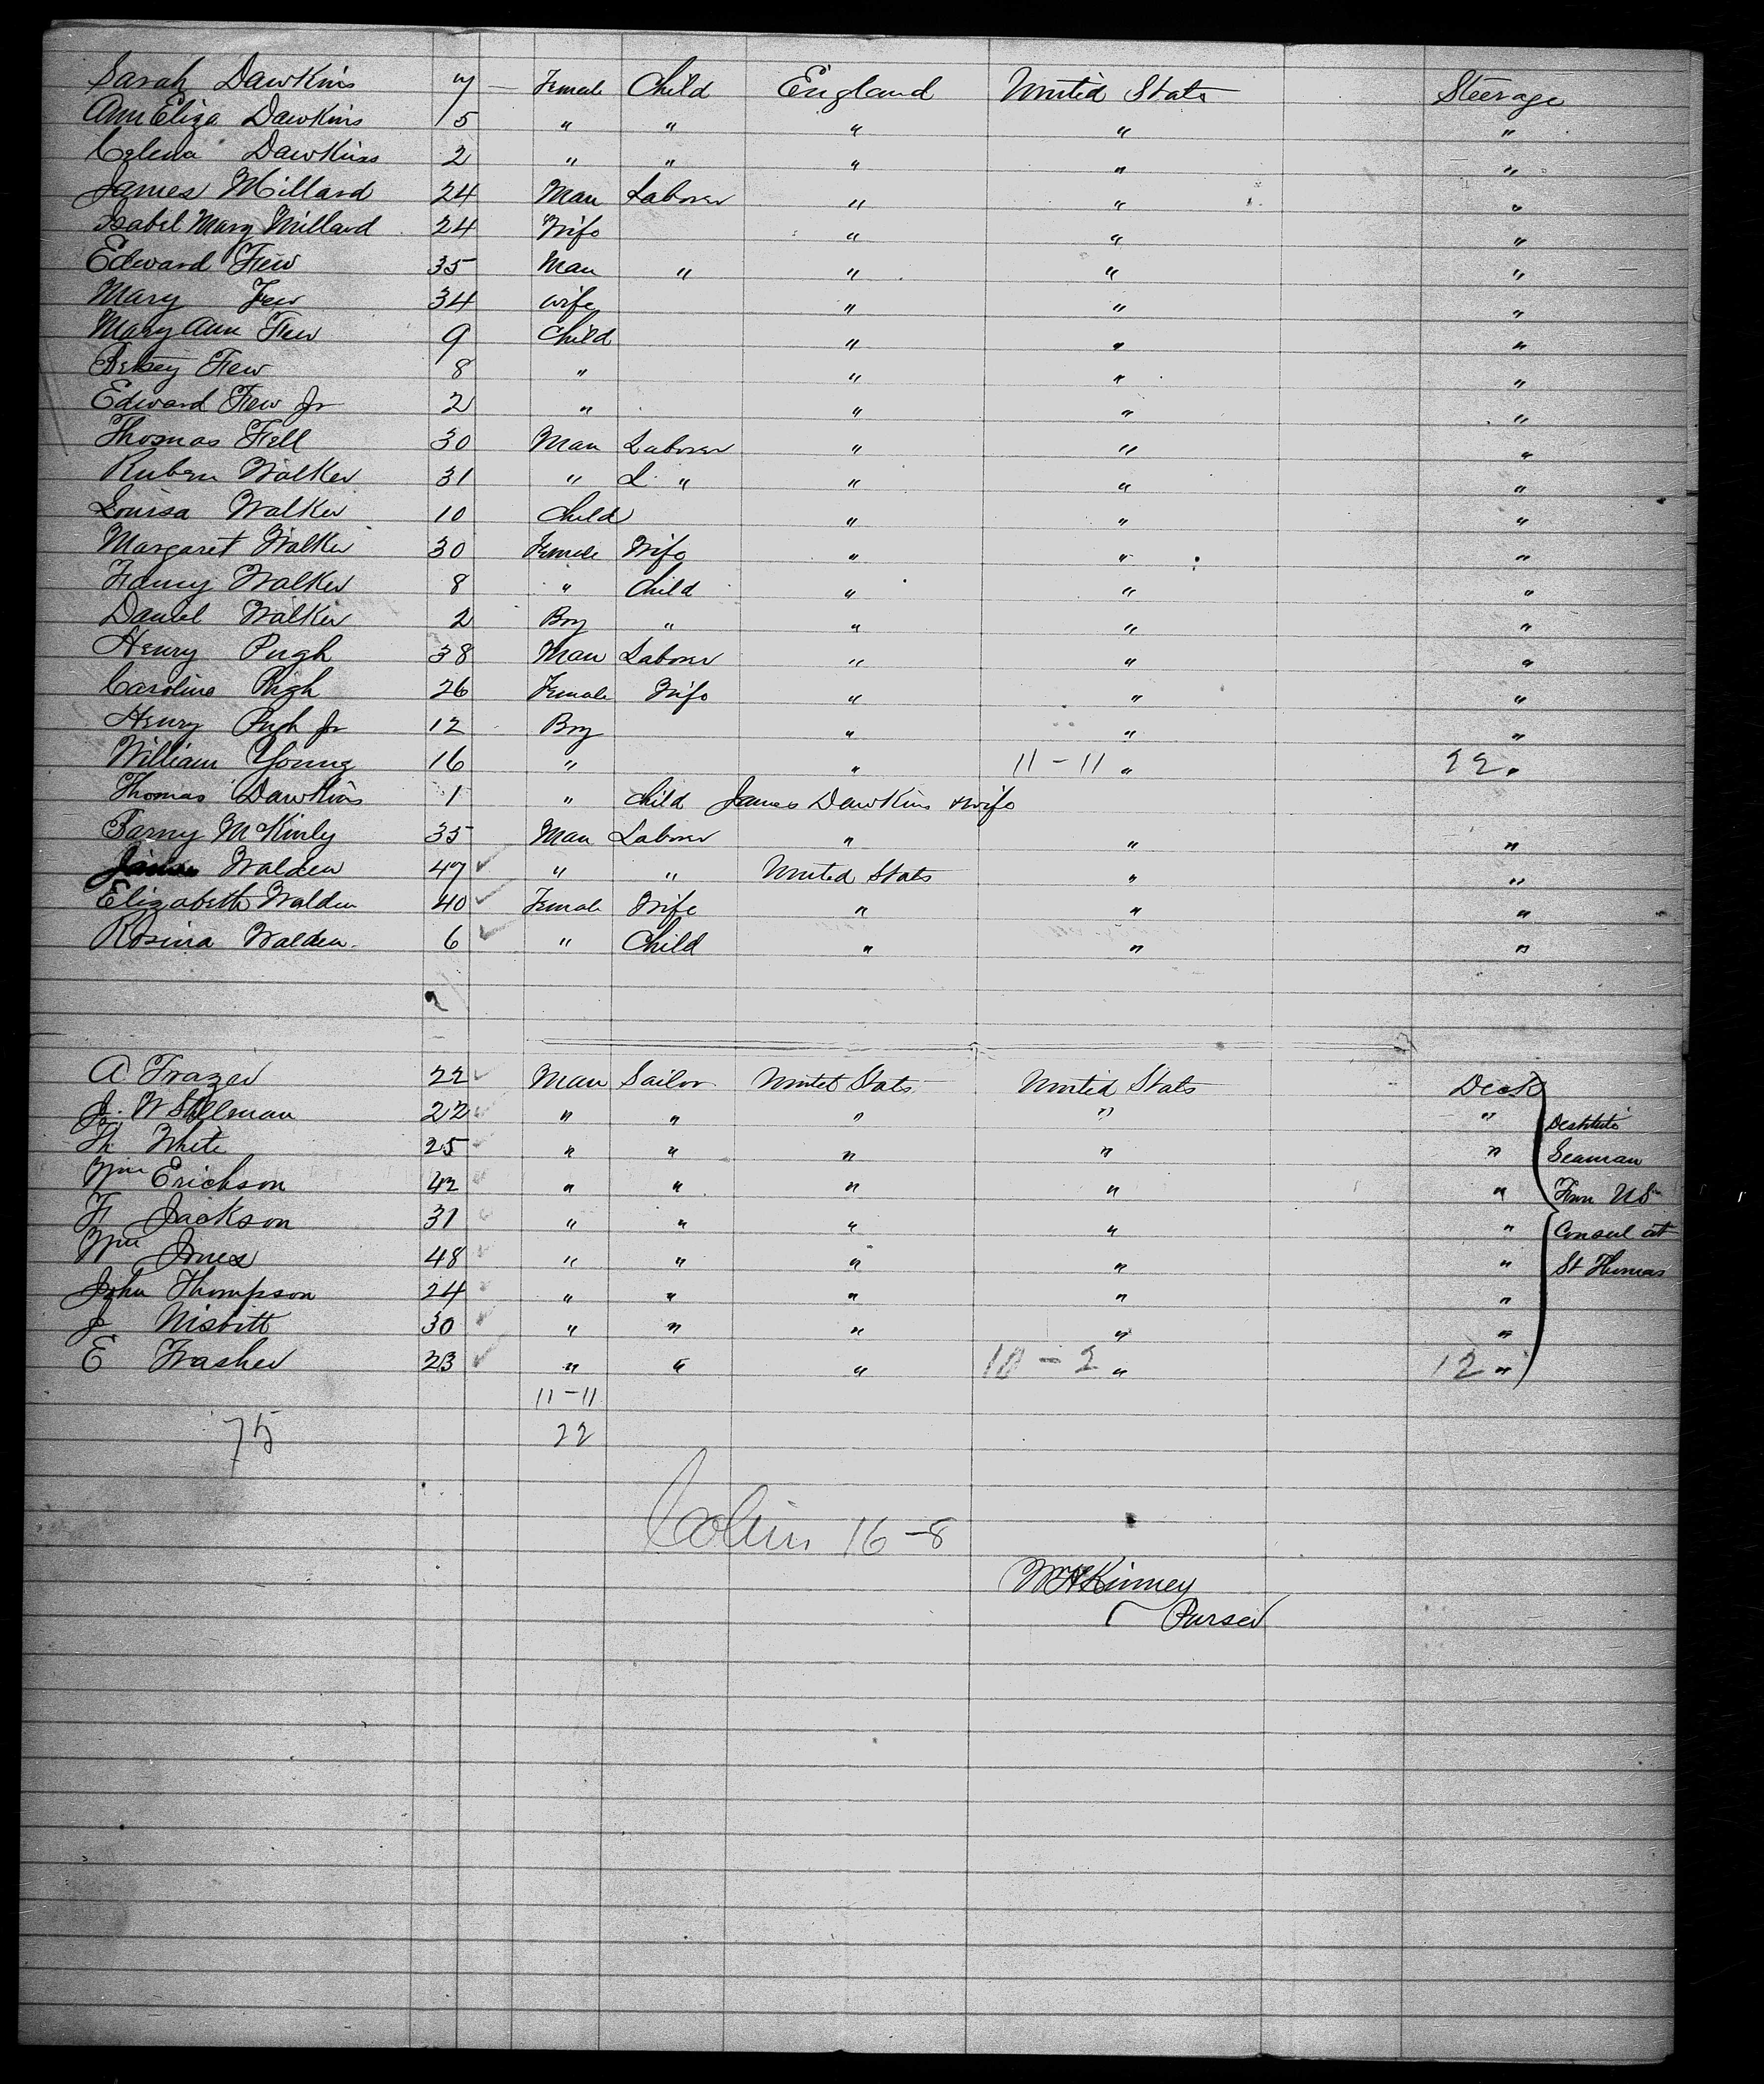 Sarah Dawkins 7 — Female Child England United Stats Steerage
Ann Eliza Dawkins 5 " " " " "
Celena Dawkins 2 " " " " "
James Millard 24 Man Laborer " " "
Isabel Mary Millard 24 Wife " " "
Edward Few 35 Man " " " "
Mary Few 34 wife " " "
Mary Ann Few 9 Child " " "
Betsey Few 8 " " " "
Edward Few Jr 2 " " " "
Thomas Fell 30 Man Laborer " " "
Ruben Walker 31 " L " " " "
Louisa Walker 10 Child " " "
Margaret Walker 30 Female Wife " " "
Fanny Walker 8 " Child " " "
Daniel Walker 2 Boy " " " "
Henry Pugh 38 Man Laborer " " "
Caroline Pugh 26 Female Wife " " "
Henry Pugh Jr 12 Boy " " "
William Young 16 " " 11-11 " 22 "
Thomas Dawkins 1 " Child James Dawkins & wife
Barny McKinly 35 Man Laborer " " "
Walden 47 " " United Stats " "
Elizabeth Walden 40 Female Wife " " "
Rosina Walden 6 " Child " " "
A Frazer 22 Man Sailor Unitet Stats United Stats Deck
J. W Stillman 22 " " " " " Destitute
Th White 25 " " " " " Seaman
Wm Erickson 42 " " " " " From US
F Jackson 31 " " " " " Consul at
Wm Jones 48 " " " " " St Thomas
John Thompson 24 " " " " "
J Nisbitt 30 " " " " "
E Frasher 23 " " " 10-2 " 12 "
11-11
75 22
16-8
Wm H Kinney
Purser